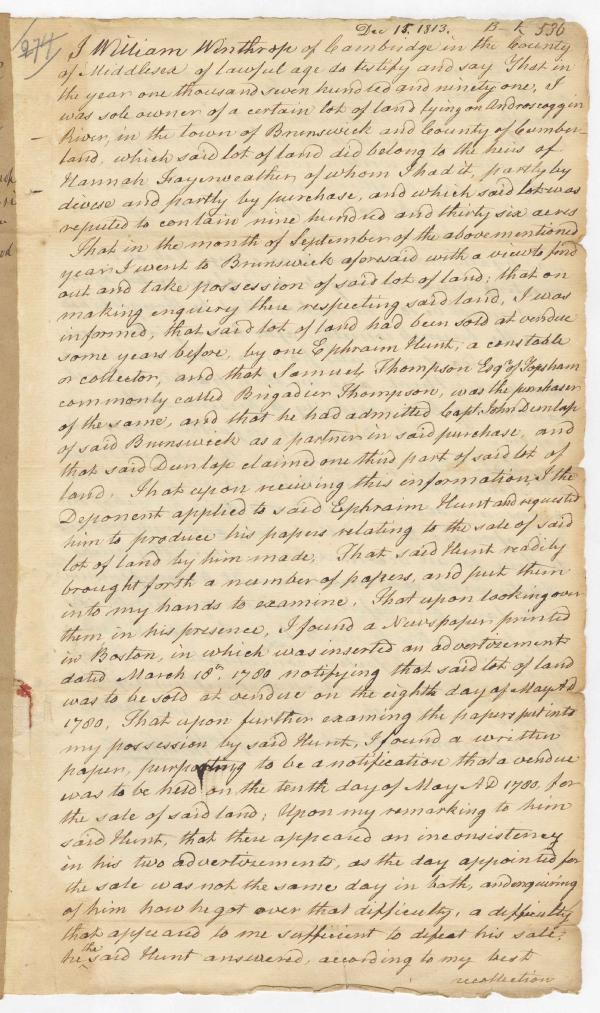 Dec 15. 1813. B-k 536
274
I William Winthrop of Cambridge in the County
of Middlesex of lawful age do testify and say That in
the year one thousand seven hundred and ninety one, I
was sole owner of a certain lot of land lying on Androscoggin
River, in the town of Brunswick and County of Cumber-
land, which said lot of land did belong to the heirs of
Hannah Fayerweather, of whom I had it, partly by
divise and partly by purchase, and which said lot was
reputed to contain nine hundred and thirty six acres
That in the month of September of the abovementioned
year I went to Brunswick aforesaid with a view to find
out and take possession of said lot of land; that on
making enquiry there respecting said land, I was
informed, that said lot of land had been sold at vendue
some years before, by one Ephraim Hunt, a constable
or collector, and that Samuel Thompson Esqr. of Topsham
commonly called Brigadier Thompson, was the purchaser
of the same, and that he had admitted Capt. John Dunlap
of said Brunswick as a partner in said purchase, and
that said Dunlap claimed one third part of said lot of
land. That upon reciving this information, I the
Deponent applied to said Ephraim Hunt and requested
him to produce his papers relating to the sale of said
lot of land by him made; That said Hunt readily
brought forth a number of papers, and put them
into my hands to examine. That upon looking over
them in his presence, I found a Newspaper printed
in Boston, in which was inserted an advertizement
dated March 18th. 1780 notifying that said lot of land
was to be sold at vendue on the eighth day of May AD
1780. That upon further examing the papers put into
my possession by said Hunt, I found a written
paper, purporting to be a notification that a vendue
was to be held on the tenth day of May AD 1780, for
the sale of said land; Upon my remarking to him
said Hunt, that there appeared an inconsistency
in his two advertizements, as the day appointed for
the sale was not the same day in both, and enquiring
of him how he got over that difficulty, a difficulty
that appeared to me sufficient to defeat his sale;
he the said Hunt answered, according to my best
recollection